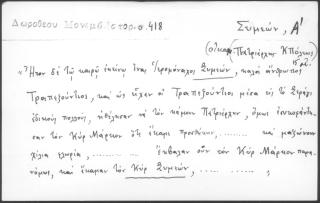 Δωροθέου Μονεμβ. Ιστορ. σ. 418
Συμεών, Α'
(Οἰκουμ. Πατριάρχης Κπόλεως)
15ος αἰ.
"Ἦτον δὲ τῷ καιρῷ ἐκείνῳ ἕνας ἱερομόναχος Συμεών, καλὸς ἄνθρωπος
Τραπεζούντιος, καὶ ὡς εἶχαν οἱ Τραπεζούντιοι μέσα εἰς τὸ Σεράγι
ἰδικούς πολλούς, ἠθέλησαν νὰ τὸν κάμουν Πατριάρχην, ὅμως
σαν τὸν Κὺρ Μάρκον ὅτι ἔκαμε προσθήκην, ........ καὶ μαζώνουν
χίλια φλωρία, ........ ἔκβαλαν οὖν τὸν Κὺρ Μάρκον παρα-
νόμως, καὶ ἔκαμαν τὸν Κὺρ Συμεών, ..... ..... ,